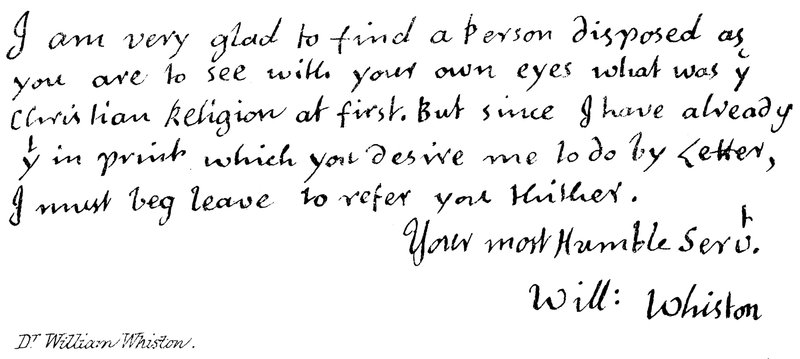 I am very glad to find a Person disposed as
you are to see with your own eyes what was yᵉ
Christian Religion at first. But since I have already
yᵗ in print which you desire me to do by Letter,
I must beg leave to refer you thither.
Your most Humble Servᵗ.
Will: Whiston
Dr William Whiston.